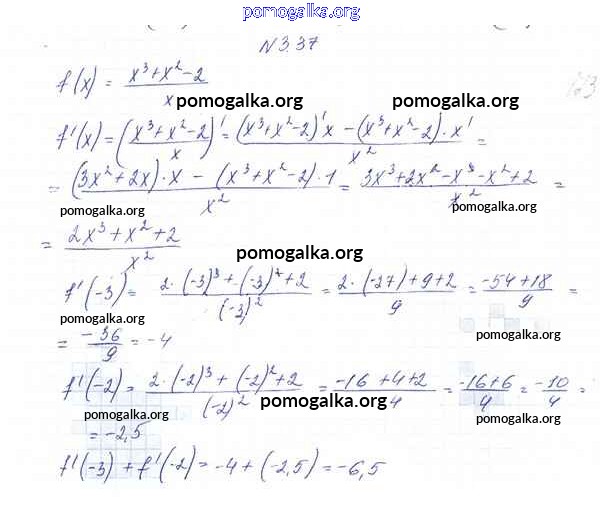 pomogalka.org
N 3.37
f(x) = (x³+x²-2)/x
pomogalka.org pomogalka.org
f'(x) = ((x³+x²-2)/x)' = ((x³+x²-2)'x - (x³+x²-2)·x')/x² =
= ((3x²+2x)·x - (x³+x²-2)·1)/x² = (3x³+2x²-x³-x²+2)/x² =
pomogalka.org pomogalka.org
= (2x³+x²+2)/x²
pomogalka.org
f'(-3) = (2·(-3)³+(-3)²+2)/(-3)² = (2·(-27)+9+2)/9 = (-54+18)/9 =
pomogalka.org pomogalka.org
= -36/9 = -4
f'(-2) = (2·(-2)³+(-2)²+2)/(-2)² = (-16+4+2)/4 = (-16+6)/4 = -10/4 =
pomogalka.org pomogalka.org pomogalka.org
= -2,5
f'(-3) + f'(-2) = -4 + (-2,5) = -6,5